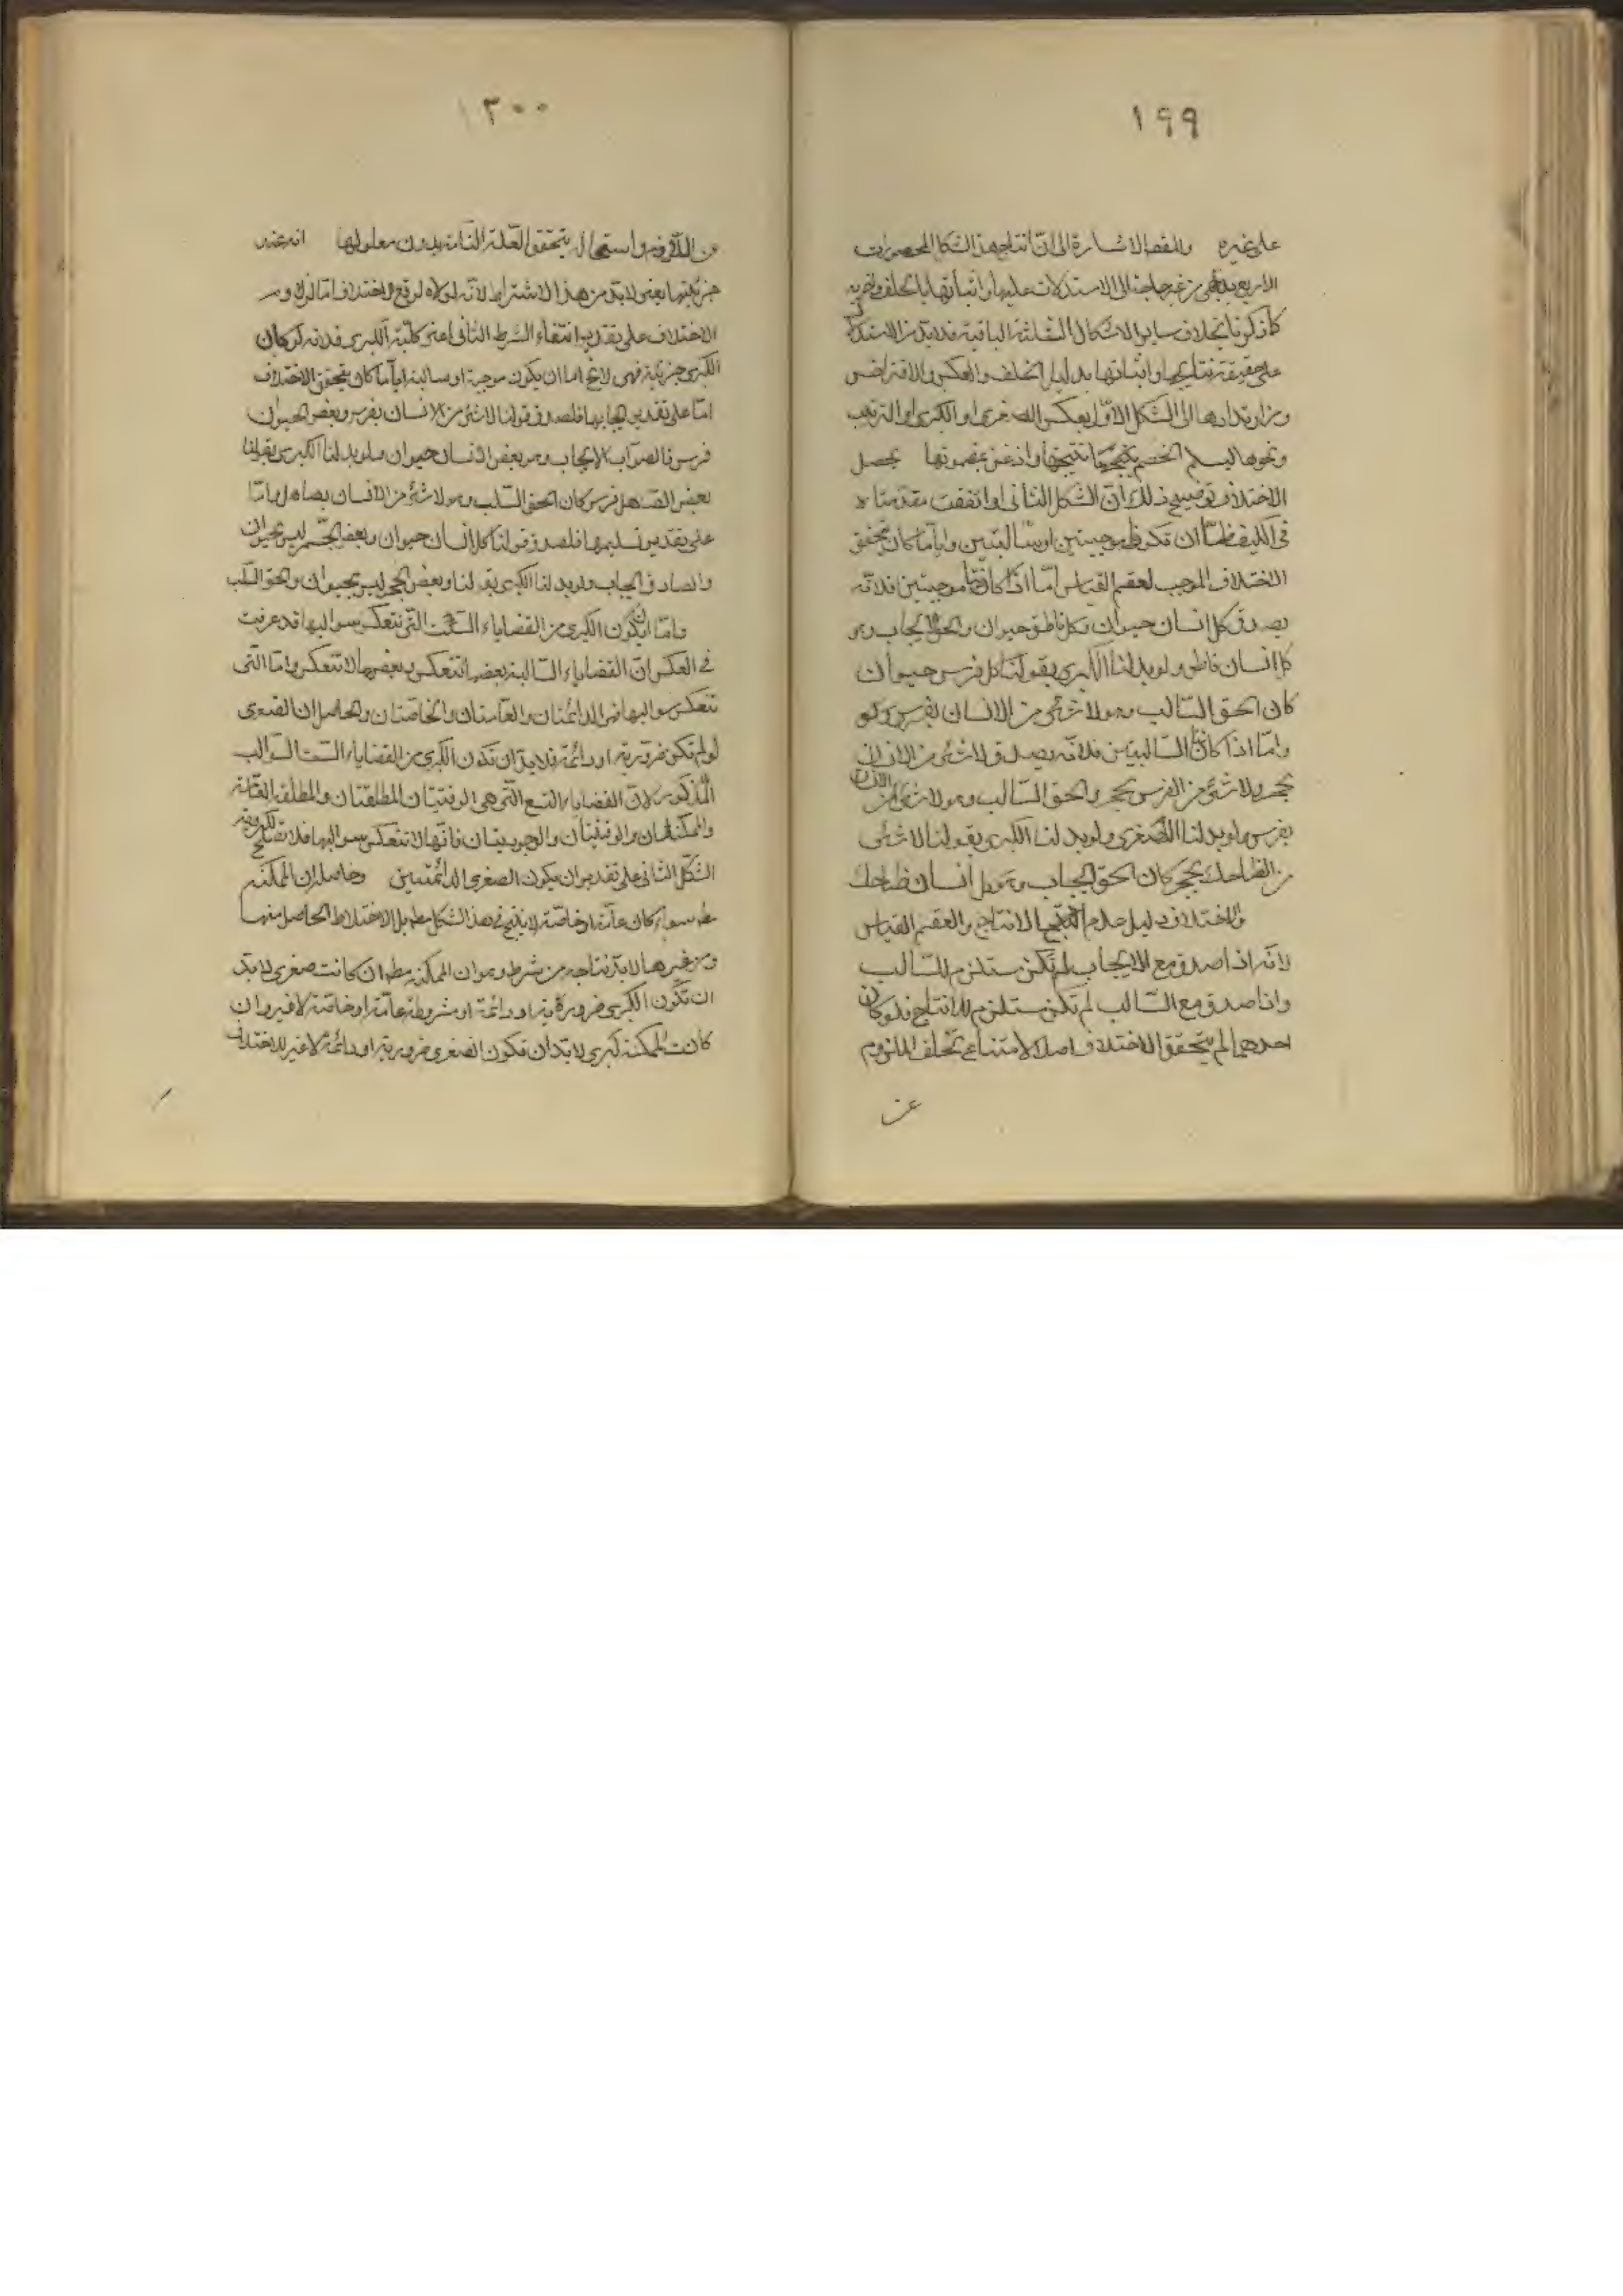 ١٩٩
على غيره وللقصر الاشارة الى ان انتاج هذا الشكل المحصورات
الاربع بديهى من غير حاجة الى الاستدلات عليها واثباتها بالخلف وغيره
كما ذكرنا بخلاف ساير الاشكال الثلثة الباقية فلا بد من الاستدلال
على حقيقة نتايجها واثباتها بدليل الخلف والعكس والافتراض
ومن ارتدادها الى الشكل الاول بعكس الصغرى او الكبرى او الترتيب
ونحوها ليسلم الخصم نتيجتها واذعن بمضمونها يحصل
الاختلاف توضيح ذلك ان الشكل الثانى لو اتفقت مقدمتاه
فى الكيف فاما ان تكونا موجبتين او سالبتين واياما كان يتحقق
الاختلاف الموجب لعقم القياس اما اذا كانتا موجبتين فلانه
يصدق كل انسان حيوان وكل ناطق حيوان والحق الايجاب وهو
كل انسان ناطق ولو بدلنا الكبرى بقولنا كل فرس حيوان
كان الحق السالب وهو لا شئ من الانسان بفرس
واما اذا كانتا السالبتين فلانه يصدق لا شئ من الانسان
بحجر ولا شئ من الفرس بحجر والحق السالب وهو لا شئ من الانسان
بفرس ولو بدلنا الكبرى بقولنا لا شئ
من الضاحك بحجر كان الحق ايجاب وهو كل انسان ضاحك
والاختلاف دليل عدم الانتاج والعقم القياس
لانه اذا صدق مع الايجاب لم تكن مستلزم للسالب
واذا صدق مع السالب لم تكن مستلزم للانتاج فلو كان
احدهما لم يتحقق الاختلاف اصلا لامتناع تخلف الملزوم
عن
٢٠٠
عن اللازم واستحالة يتحقق العلة التامة بدون معلولها انه عند
جزئيتها يعنى لا بد من هذا الاشتراط لانه لولاه لوقع الاختلاف اما
الاختلاف على تقدير انتفاء الشرط الثانى اعنى كلية الكبرى فلانه لو كان
الكبرى جزئية فهى لا يخ اما ان يكون موجبة او سالبة واياما كان يتحقق الاختلاف
اما على تقدير ايجابها فلصدق قولنا لا شئ من الانسان بفرس وبعض الحيوان
فرس فالصواب الايجاب وهو بعض الانسان حيوان ولو بدلنا الكبرى بقولنا
بعض الصاهل فرس كان الحق السلب وهو لا شئ من الانسان بصاهل واما
على تقدير سلبها فلصدق قولنا كل انسان حيوان وبعض الجسم ليس بحيوان
والصادق ايجاب ولو بدلنا الكبرى بقولنا وبعض الحجر ليس بحيوان والحق السلب
واما ان يكون الكبرى من القضاياء الست التى تنعكس سوالبها قد عرفت
فى العكس ان القضاياء السالبة بعضها تنعكس وبعضها لا تنعكس واما التى
تنعكس سوالبها فهى الدائمتان والعامتان والخاصتان والحاصل ان الصغرى
لو لم تكن ضرورية او دائمة فلا بد ان تكون الكبرى من القضاياء الست السوالب
المذكورة لان القضاياء التسع التى هى الوقتيتان المطلقتان والمطلقة العامة
والممكنتان والوقتيتان والوجوديتان فانها لا تنعكس سوالبها فلا تصلح لكبروية
الشكل الثانى على تقدير ان يكون الصغرى الدائمتين وحاصله ان الممكنة
مط سواء كان عامة او خاصة لا ينتج فى هذا الشكل مط بل الاختلاط الحاصل منها
ومن غيرها لا بد نتاجه من شرط وهو ان الممكنة مط ان كانت صغرى لا بد
ان تكون الكبرى ضرورية او دائمة او مشروطة عامة او خاصة لا غير وان
كانت الممكنة كبرى لا بد ان تكون الصغرى ضرورية او دائمة لا غير للاختلاف